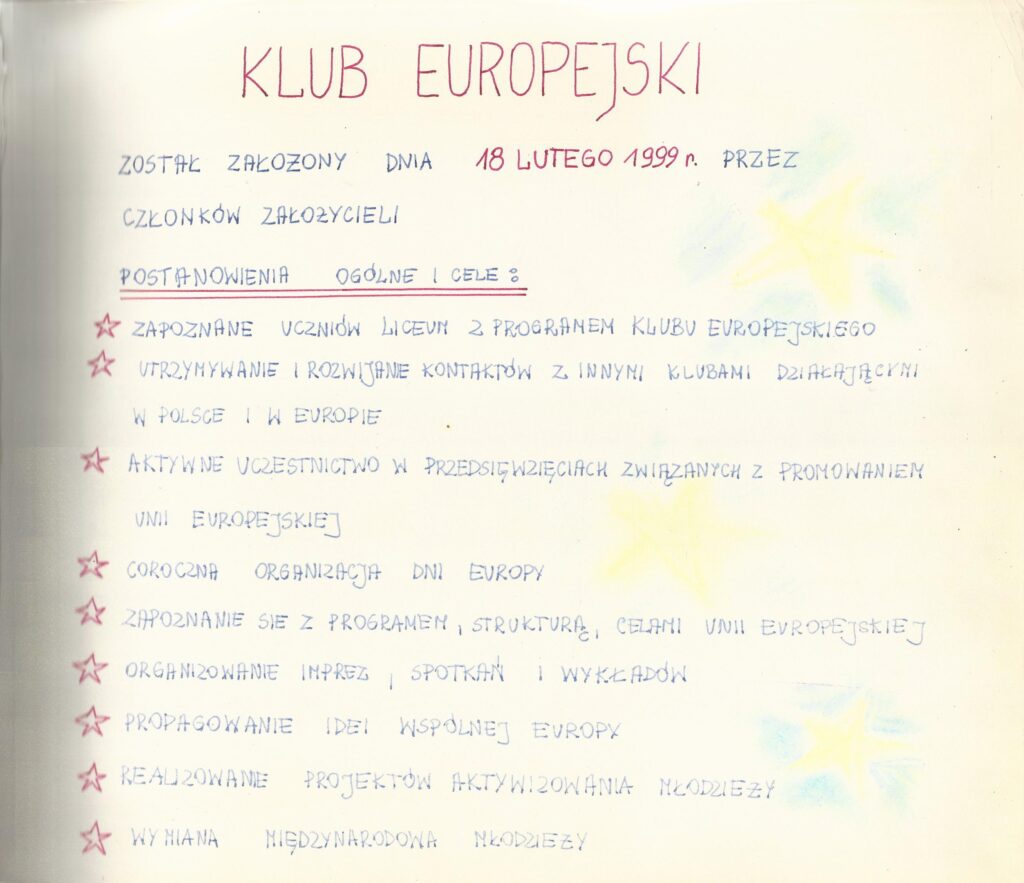 KLUB EUROPEJSKI
ZOSTAŁ ZAŁOŻONY DNIA 18 LUTEGO 1999 r. PRZEZ
CZŁONKÓW ZAŁOŻYCIELI
POSTANOWIENIA OGÓLNE I CELE :
ZAPOZNANE UCZNIÓW LICEUM Z PROGRAMEM KLUBU EUROPEJSKIEGO
UTRZYMYWANIE I ROZWIJANIE KONTAKTÓW Z INNYMI KLUBAMI DZIAŁAJĄCYMI
W POLSCE I W EUROPIE
AKTYWNE UCZESTNICTWO W PRZEDSIĘWZIĘCIACH ZWIĄZANYCH Z PROMOWANIEM
UNII EUROPEJSKIEJ
COROCZNA ORGANIZACJA DNI EUROPY
ZAPOZNANIE SIE Z PROGRAMEM, STRUKTURĄ, CELAMI UNII EUROPEJSKIEJ
ORGANIZOWANIE IMPREZ, SPOTKAŃ I WYKŁADÓW
PROPAGOWANIE IDEI WSPÓLNEJ EUROPY
REALIZOWANIE PROJEKTÓW AKTYWIZOWANIA MŁODZIEŻY
WYMIANA MIĘDZYNARODOWA MŁODZIEŻY